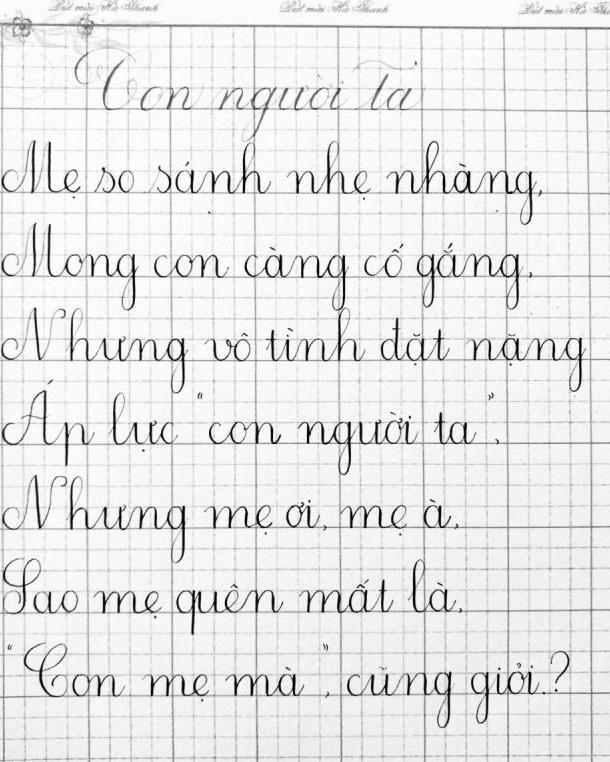 Bút mực Hà Thanh Bút mực Hà Thanh Bút mực Hà
Con người ta
Mẹ so sánh nhẹ nhàng,
Mong con càng cố gắng,
Nhưng vô tình đặt nặng
Áp lực "con người ta".
Nhưng mẹ ơi, mẹ à,
Sao mẹ quên mất là,
"Con mẹ mà", cũng giỏi.?